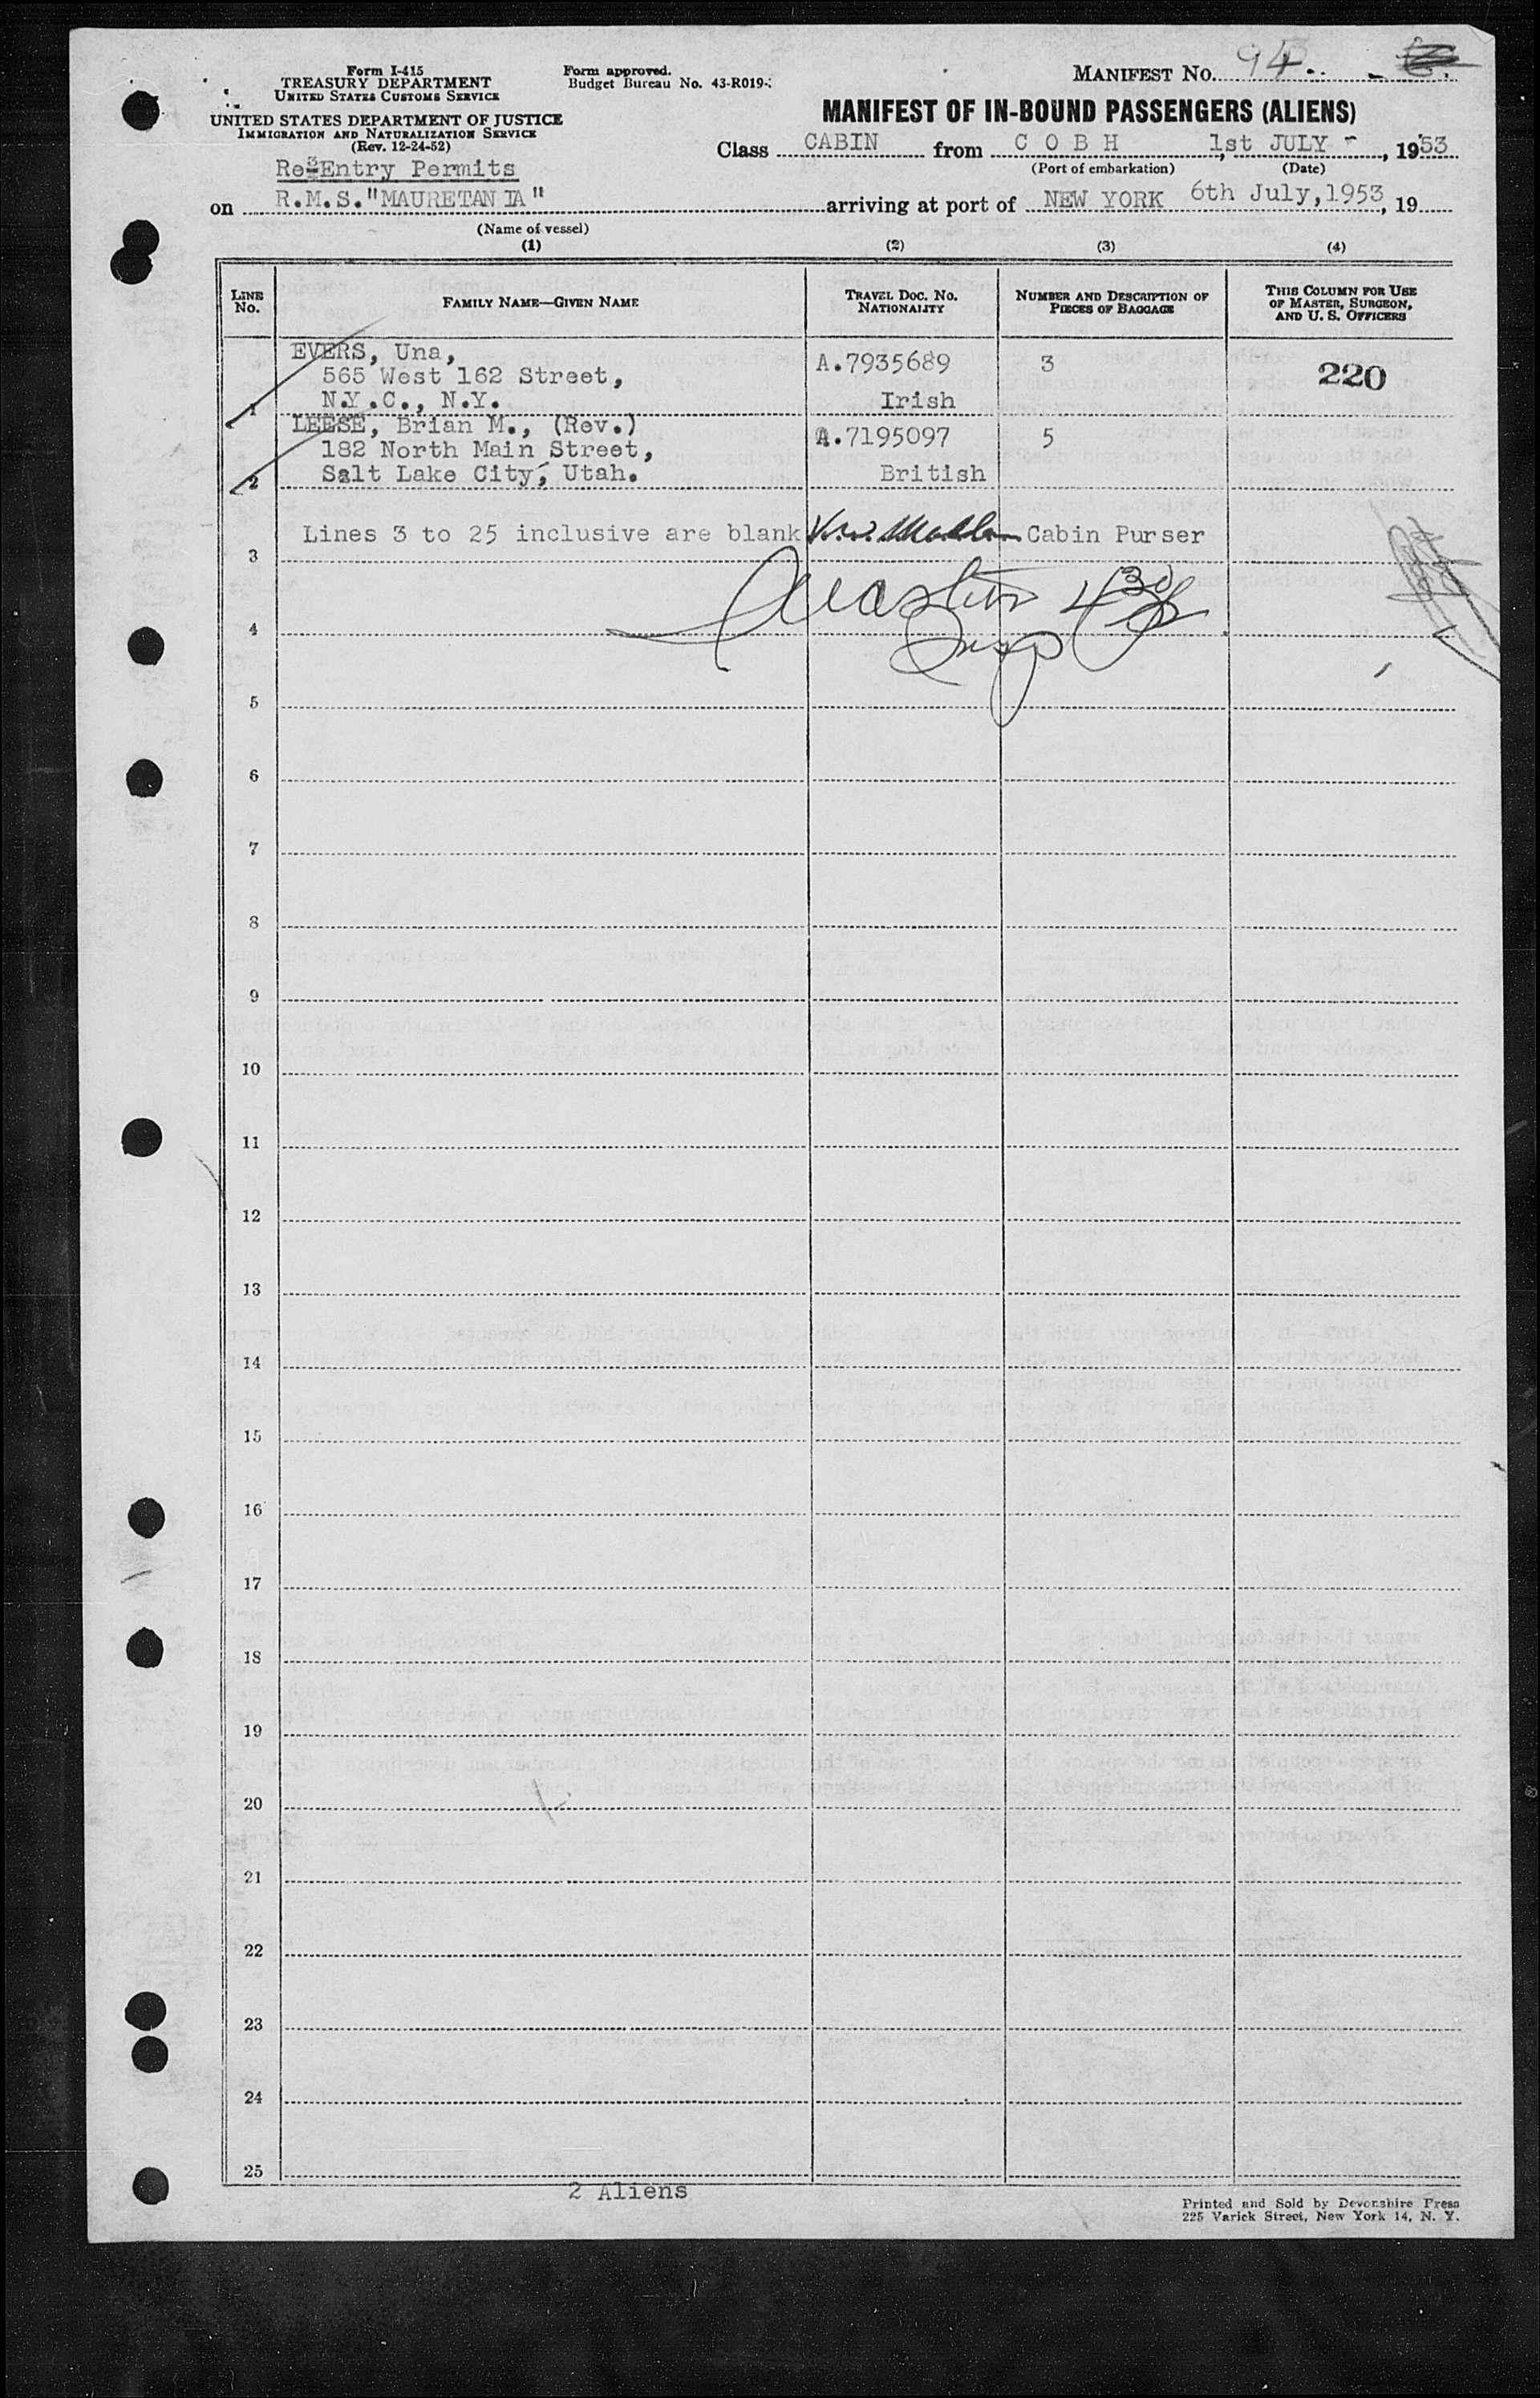 Form I-415
TREASURY DEPARTMENT
UNITED STATES CUSTOMS SERVICE
UNITED STATES DEPARTMENT OF JUSTICE
IMMIGRATION AND NATURALIZATION SERVICE
(Rev. 12-24-52)
Form approved.
Budget Bureau No. 43-R019-
MANIFEST NO. 94
MANIFEST OF IN-BOUND PASSENGERS (ALIENS)
Class CABIN from C O B H, 1st JULY, 1953
(Port of embarkation) (Date)
Re-Entry Permits
on R.M.S."MAURETANIA" arriving at port of NEW YORK 6th July,1953, 19
(Name of vessel)
(1) (2) (3) (4)
LINE NO. FAMILY NAME—GIVEN NAME TRAVEL DOC. NO. NATIONALITY NUMBER AND DESCRIPTION OF PIECES OF BAGGAGE THIS COLUMN FOR USE OF MASTER, SURGEON, AND U. S. OFFICERS
EVERS, Una, A.7935689 3 220
565 West 162 Street,
1 N.Y.C., N.Y. Irish
LEESE, Brian M., (Rev.) A.7195097 5
182 North Main Street,
2 Salt Lake City, Utah. British
Lines 3 to 25 inclusive are blank Cabin Purser
3
4
Insp
5
6
7
8
9
10
11
12
13
14
15
16
17
18
19
20
21
22
23
24
25
2 Aliens
Printed and Sold by Devonshire Press
225 Varick Street, New York 14, N. Y.